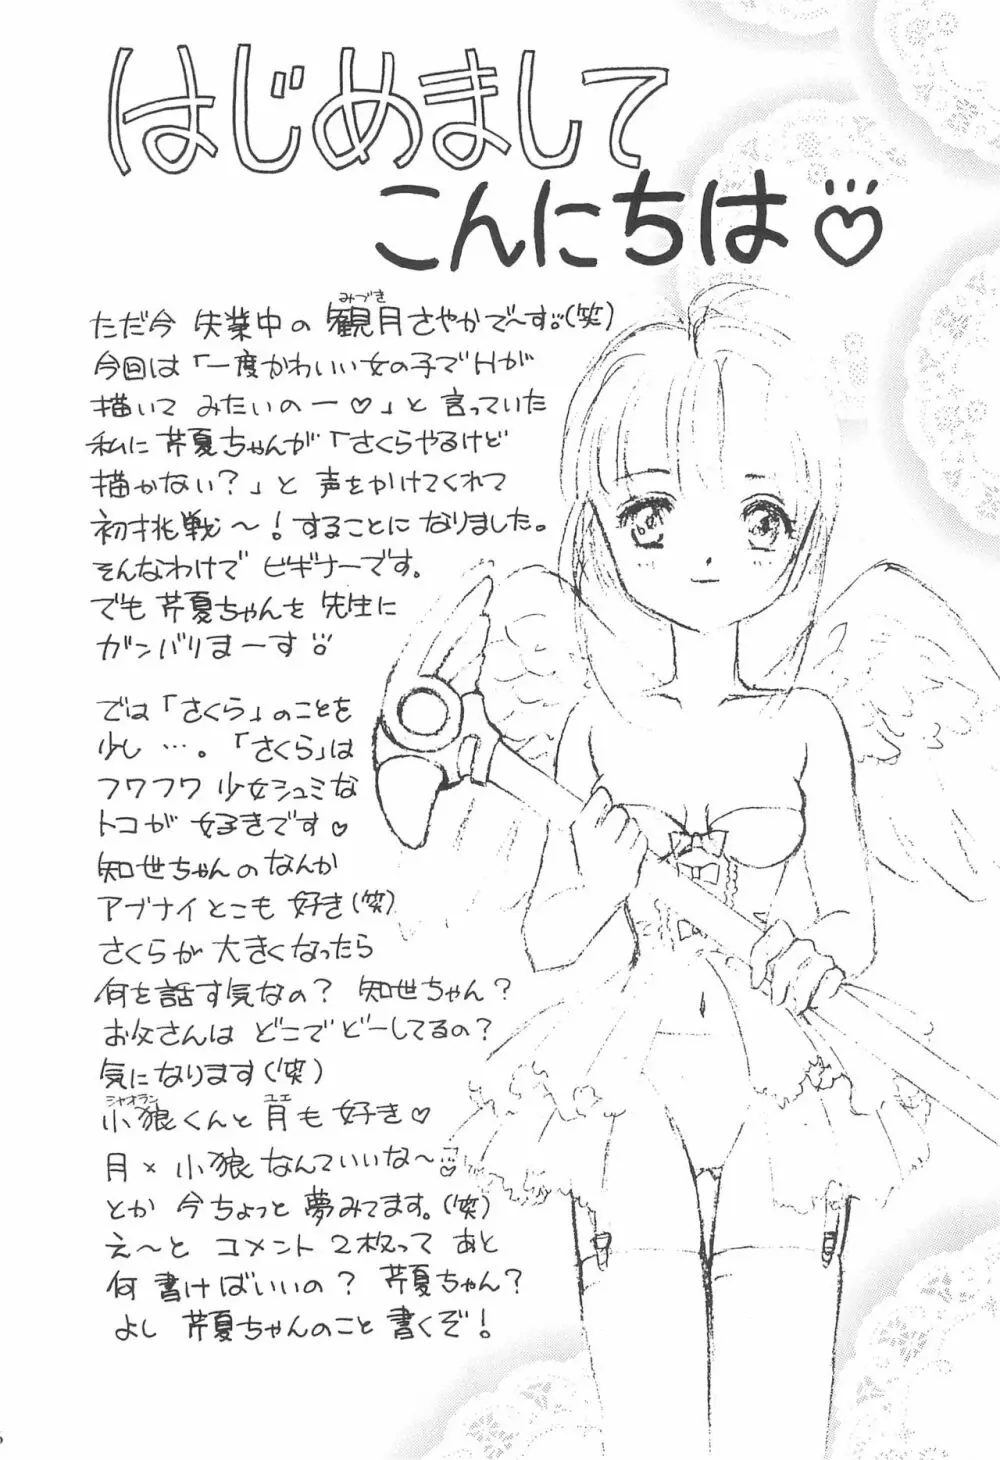 はじめまして
こんにちは♡
ただ今 失業中の 観月さやかで〜す。(笑)
みづき
今回は「一度かわいい女の子でHが
描いて みたいのー♡」と 言っていた
私に 芹夏ちゃんが「さくらやるけど
描かない?」と 声をかけてくれて
初挑戦〜!することに なりました。
そんなわけで ビギナーです。
でも 芹夏ちゃんを 先生に
ガンバリまーす
では「さくら」のことを
少し …。「さくら」は
フワフワ 少女シュミな
トコが 好きです♡
知世ちゃんの なんか
アブナイとこも 好き(笑)
さくらが 大きくなったら
何を話す気なの? 知世ちゃん?
お父さんは どこで どーしてるの?
気になります(笑)
シャオラン ユエ
小狼くんと 月も 好き♡
月×小狼 なんていいな〜
とか 今ちょっと 夢みてます。(笑)
え〜と コメント 2枚って あと
何 書けばいいの? 芹夏ちゃん?
よし 芹夏ちゃんのこと 書くぞ!